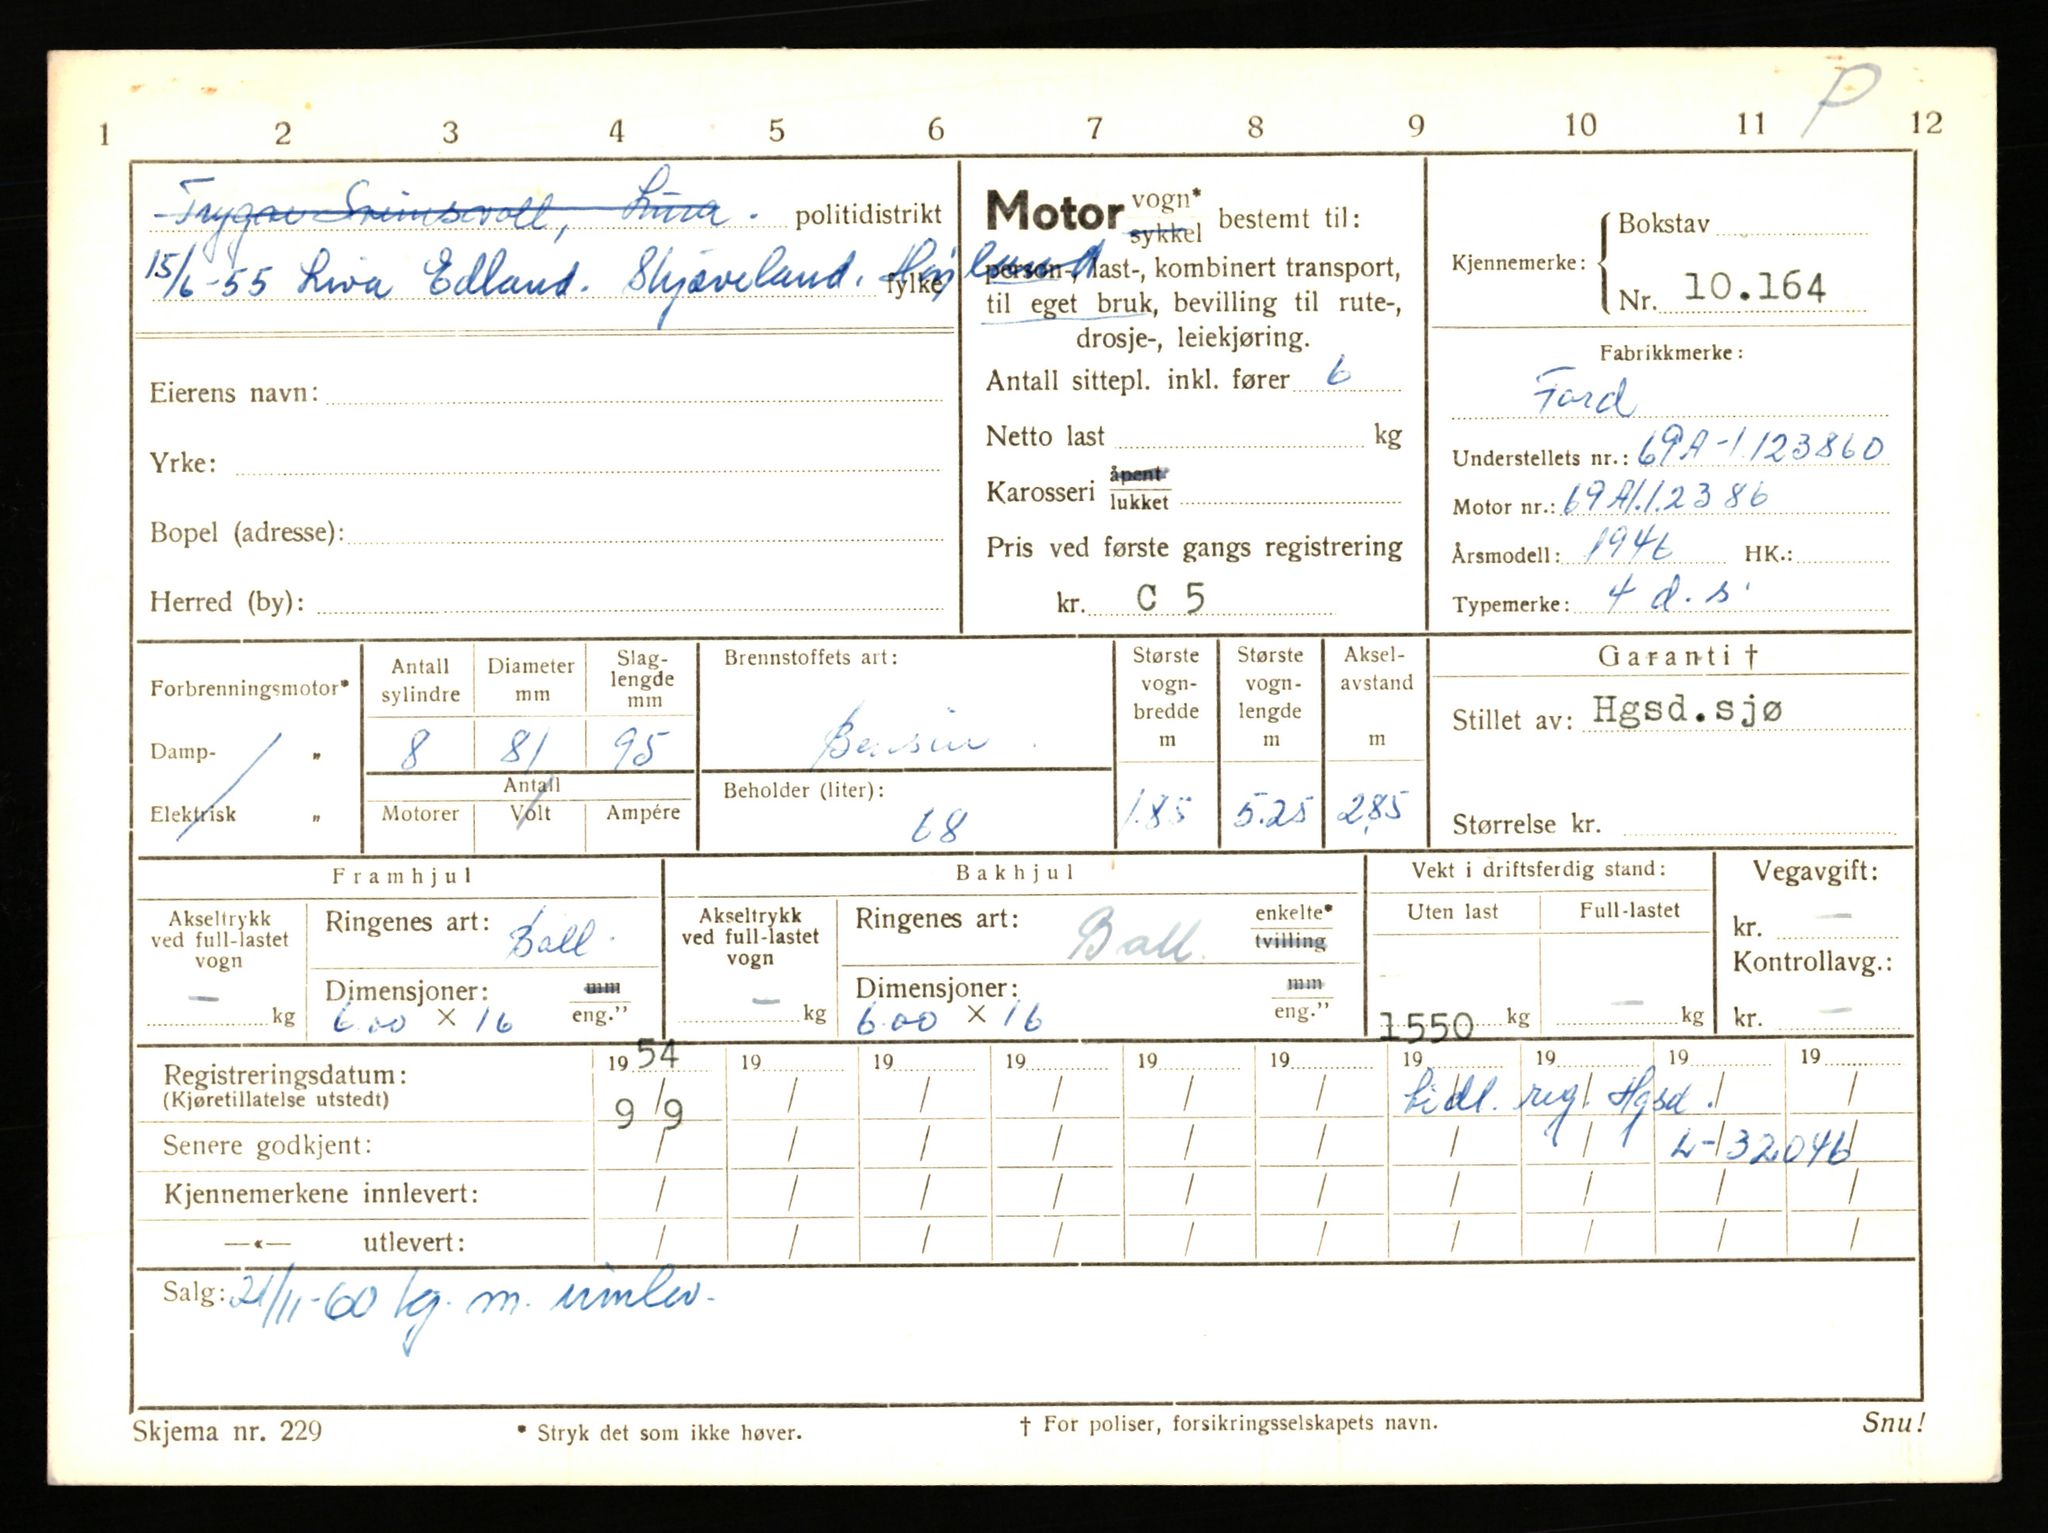 P
1 2 3 4 5 6 7 8 9 10 11 12
Trygve Svimsvoll, Lura. politidistrikt
15/6-55 Liva Edland. Skjæveland. Høyland fylke
Eierens navn:
Yrke:
Bopel (adresse):
Herred (by):
Motor vogn* sykkel bestemt til:
person-, last-, kombinert transport,
til eget bruk, bevilling til rute-,
drosje-, leiekjøring.
Antall sittepl. inkl. fører 6
Netto last kg
Karosseri åpent lukket
Pris ved første gangs registrering
kr. C 5
Kjennemerke: Bokstav
Nr. 10.164
Fabrikkmerke:
Ford
Understellets nr.: 69A-1123860
Motor nr.: 69A1.1.2386
Årsmodell: 1946 HK.:
Typemerke: 4 d.s.
Forbrenningsmotor*
Damp- „
Elektrisk „
Antall sylindre
Diameter mm
Slag-
lengde
mm
8 81 95
Antall
Motorer Volt Ampére
Brennstoffets art:
Bensin
Beholder (liter):
68
Største
vogn-
bredde
m
1.85
Største
vogn-
lengde
m
5.25
Aksel-
avstand
m
2,85
Garanti †
Stillet av: Hgsd.sjø
Størrelse kr.
Framhjul
Akseltrykk
ved full-lastet
vogn
— kg
Ringenes art: Ball.
Dimensjoner: mm
6.00 × 16 eng.”
Bakhjul
Akseltrykk
ved full-lastet
vogn
— kg
Ringenes art: Ball. enkelte*
tvilling
Dimensjoner: mm
6.00 × 16 eng.”
Vekt i driftsferdig stand:
Uten last Full-lastet
1550 kg — kg
Vegavgift:
kr. —
Kontrollavg.:
kr. —
19 54 19 19 19 19 19 19 19 19 19
Registreringsdatum:
(Kjøretillatelse utstedt)
9/9 / / / / / / / / /
tidl. reg. Hgsd.
Senere godkjent: / / / / / / / / / /
L-32046
Kjennemerkene innlevert: / / / / / / / / / /
—«— utlevert: / / / / / / / / / /
Salg: 21/11-60 kj. m. innlev.
Skjema nr. 229 * Stryk det som ikke høver. † For poliser, forsikringsselskapets navn. Snu!